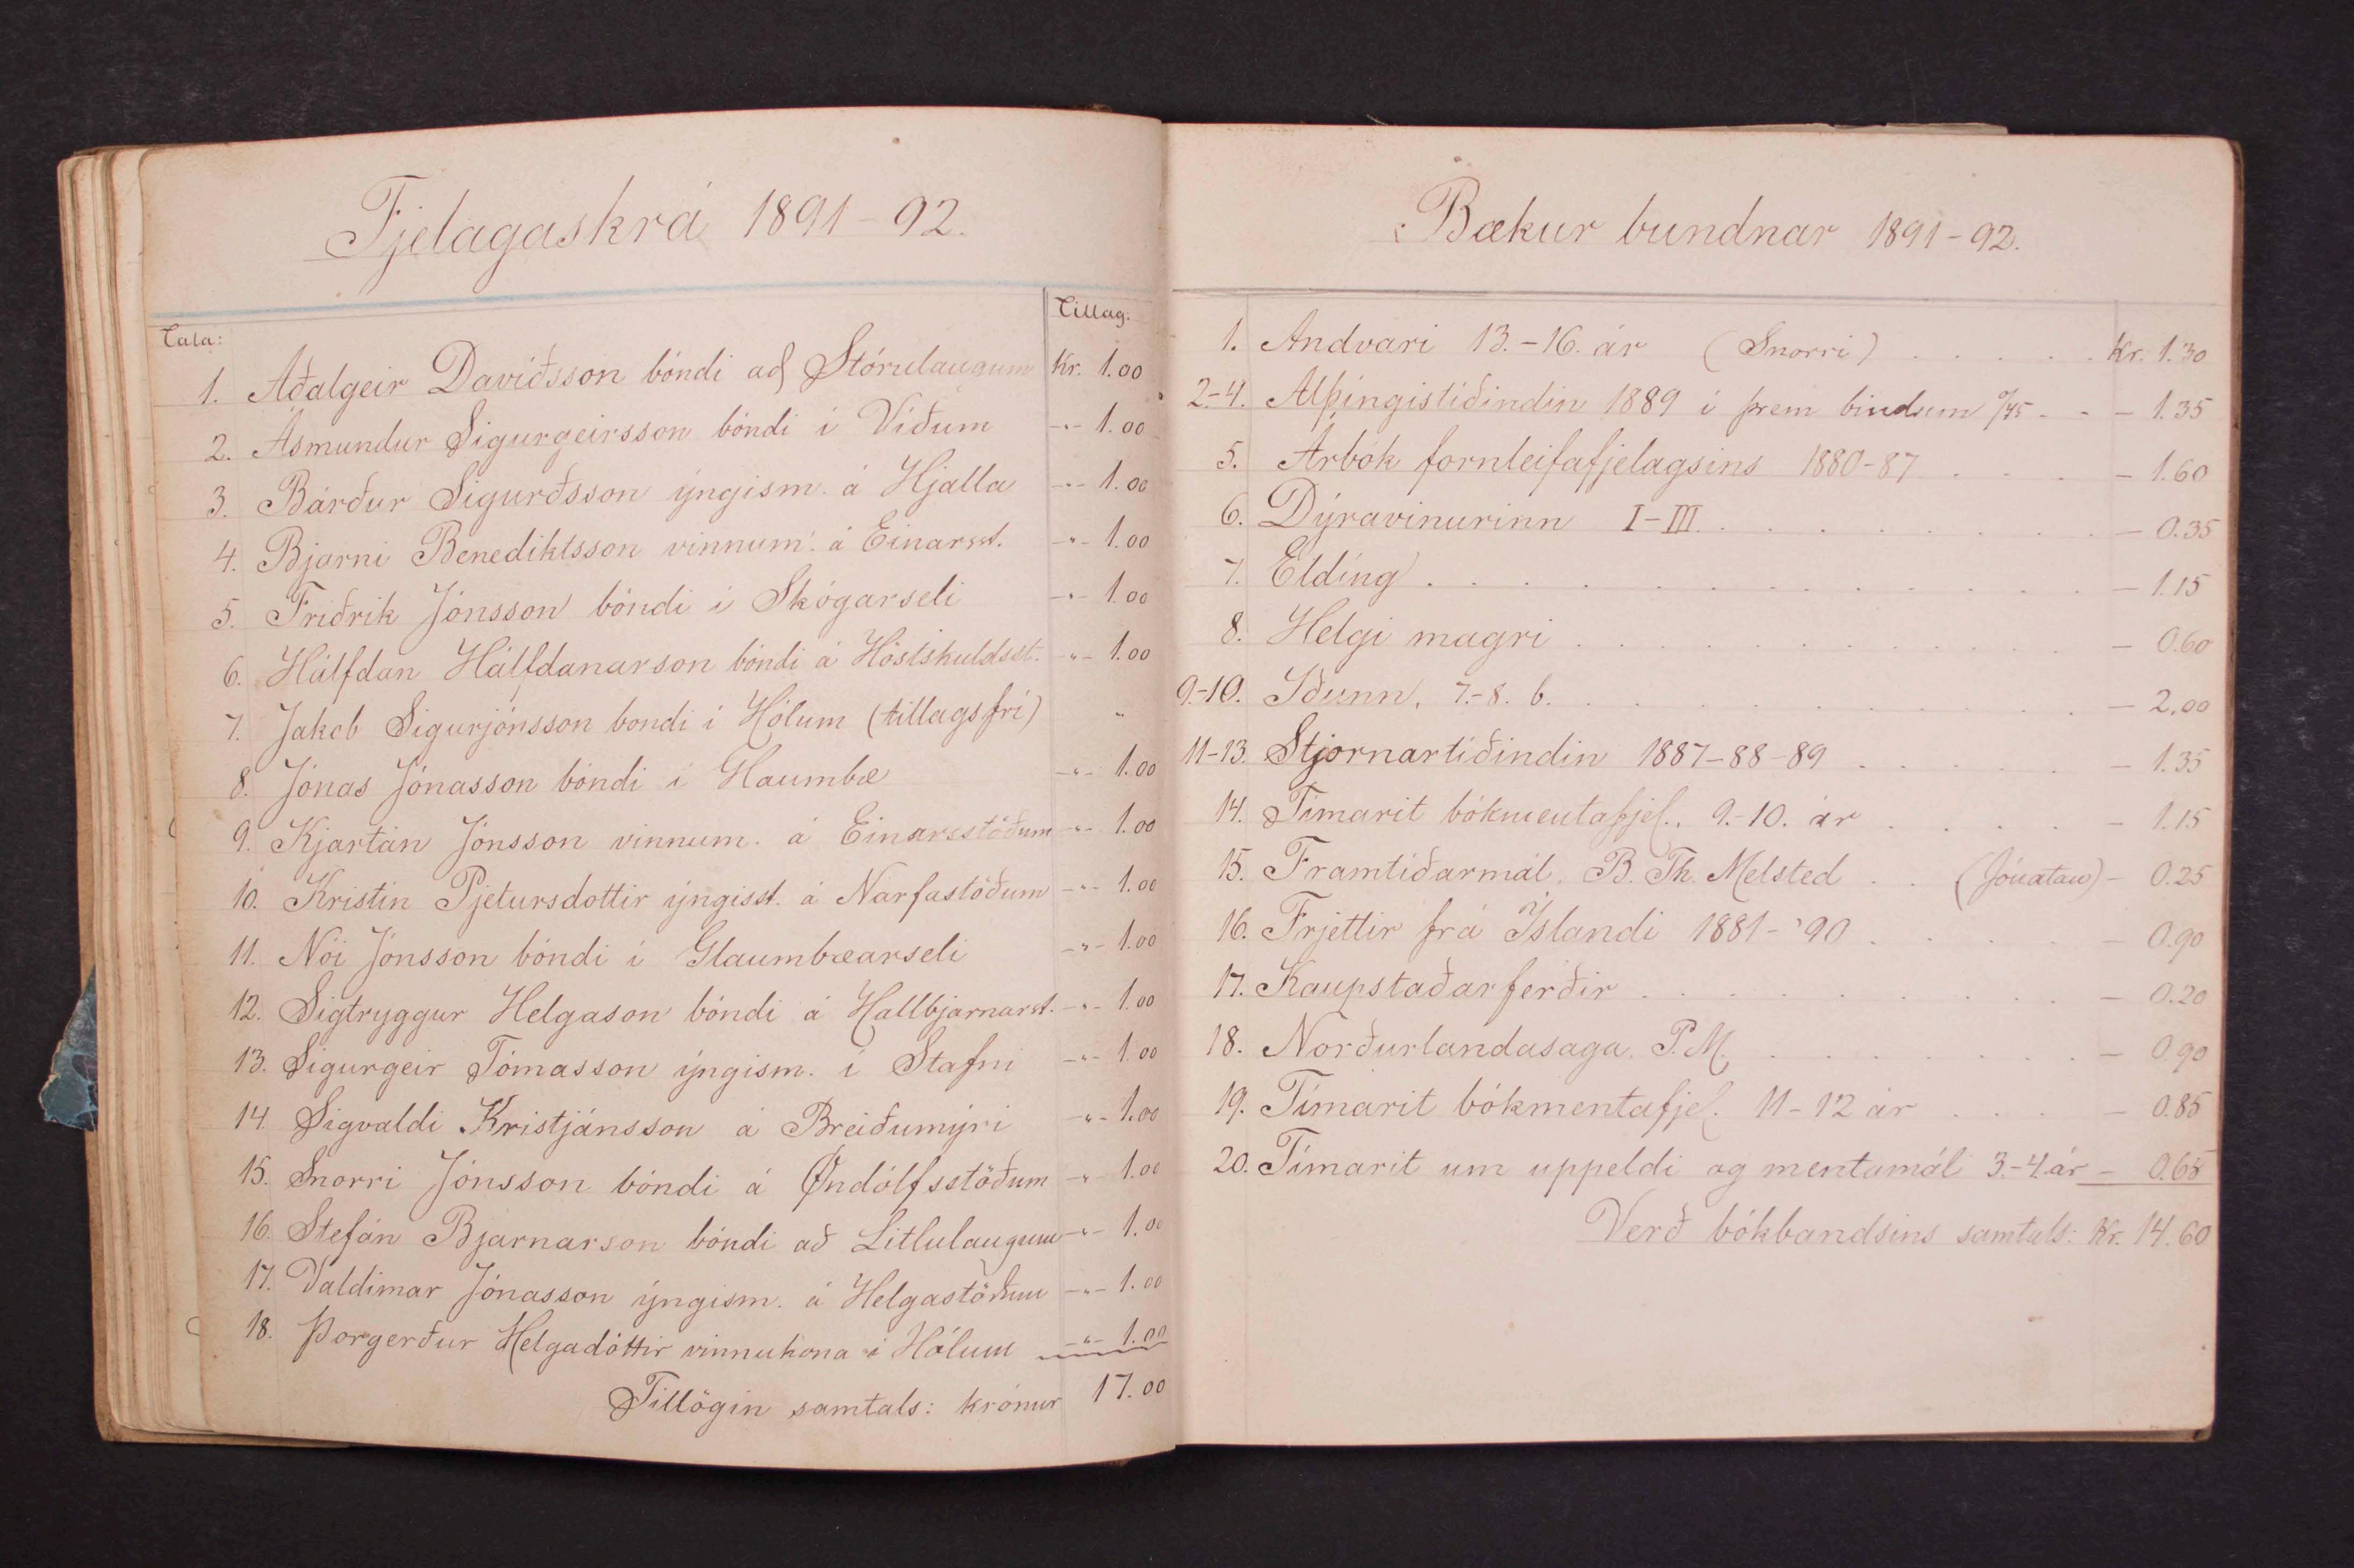 Fjelagaskrá 1891-92.
Tala: Tillag:
1. Aðalgeir Davíðsson bóndi að Stórulaugum Kr. 1.00
2. Ásmundur Sigurgeirsson bóndi í Víðum -"- 1.00
3. Bárður Sigurðsson ýngism. á Hjalla -"- 1.00
4. Bjarni Benediktsson vinnum. á Einarsst. -"- 1.00
5. Friðrik Jónsson bóndi í Skógarseli -"- 1.00
6. Hálfdan Hálfdanarson bóndi á Höskuldsst. -"- 1.00
7. Jakob Sigurjónsson bondi í Hólum (tillagsfrí) "
8. Jónas Jónasson bóndi í Glaumbæ -"- 1.00
9. Kjartan Jónsson vinnum. á Einarsstöðum -"- 1.00
10. Kristín Pjetursdottir ýngisst. á Narfastöðum -"- 1.00
11. Nói Jónsson bóndi í Glaumbæarseli -"- 1.00
12. Sigtryggur Helgason bóndi á Hallbjarnarst. -"- 1.00
13. Sigurgeir Tómasson ýngism. í Stafni -"- 1.00
14. Sigvaldi Kristjánsson á Breiðumýri -"- 1.00
15. Snorri Jónsson bóndi á Öndólfsstöðum -"- 1.00
16. Stefán Bjarnarson bóndi að Litlulaugum -"- 1.00
17. Valdimar Jónasson ýngism. á Helgastöðum -"- 1.00
18. Þorgerður Helgadóttir vinnukona í Hólum -"- 1.00
Tillögin samtals: krónur 17.00
Bækur bundnar 1891-92.
1. Andvari 13.-16. ár (Snorri) . . . . . Kr. 1.30
2.-4. Alþingistíðindin 1889 í þrem bindum 0/45 - - - 1.35
5. Árbók fornleifafjelagsins 1880-87 . . . - 1.60
6. Dýravinurinn I-III . . . . . . . - 0.35
7. Elding . . . . . . . . . . - 1.15
8. Helgi magri . . . . . . . . - 0.60
9.-10. Iðunn, 7.-8. b. . . . . . . . . - 2.00
11-13. Stjornartíðindin 1887-88-89 . . . . - 1.35
14. Tímarit bókmentafjel. 9.-10. ár . . . . - 1.15
15. Framtíðarmál. B. Th. Melsted . . (Jónatan) - 0.25
16. Frjettir frá Íslandi 1881-'90 . . . . - 0.90
17. Kaupstaðarferðir . . . . . . . - 0.20
18. Norðurlandasaga. P. M. . . . . . . - 0.90
19. Tímarit bókmentafjel. 11-12 ár . . . . - 0.85
20. Tímarit um uppeldi og mentamál 3.-4. ár - 0.65
Verð bókbandsins samtals: Kr. 14.60